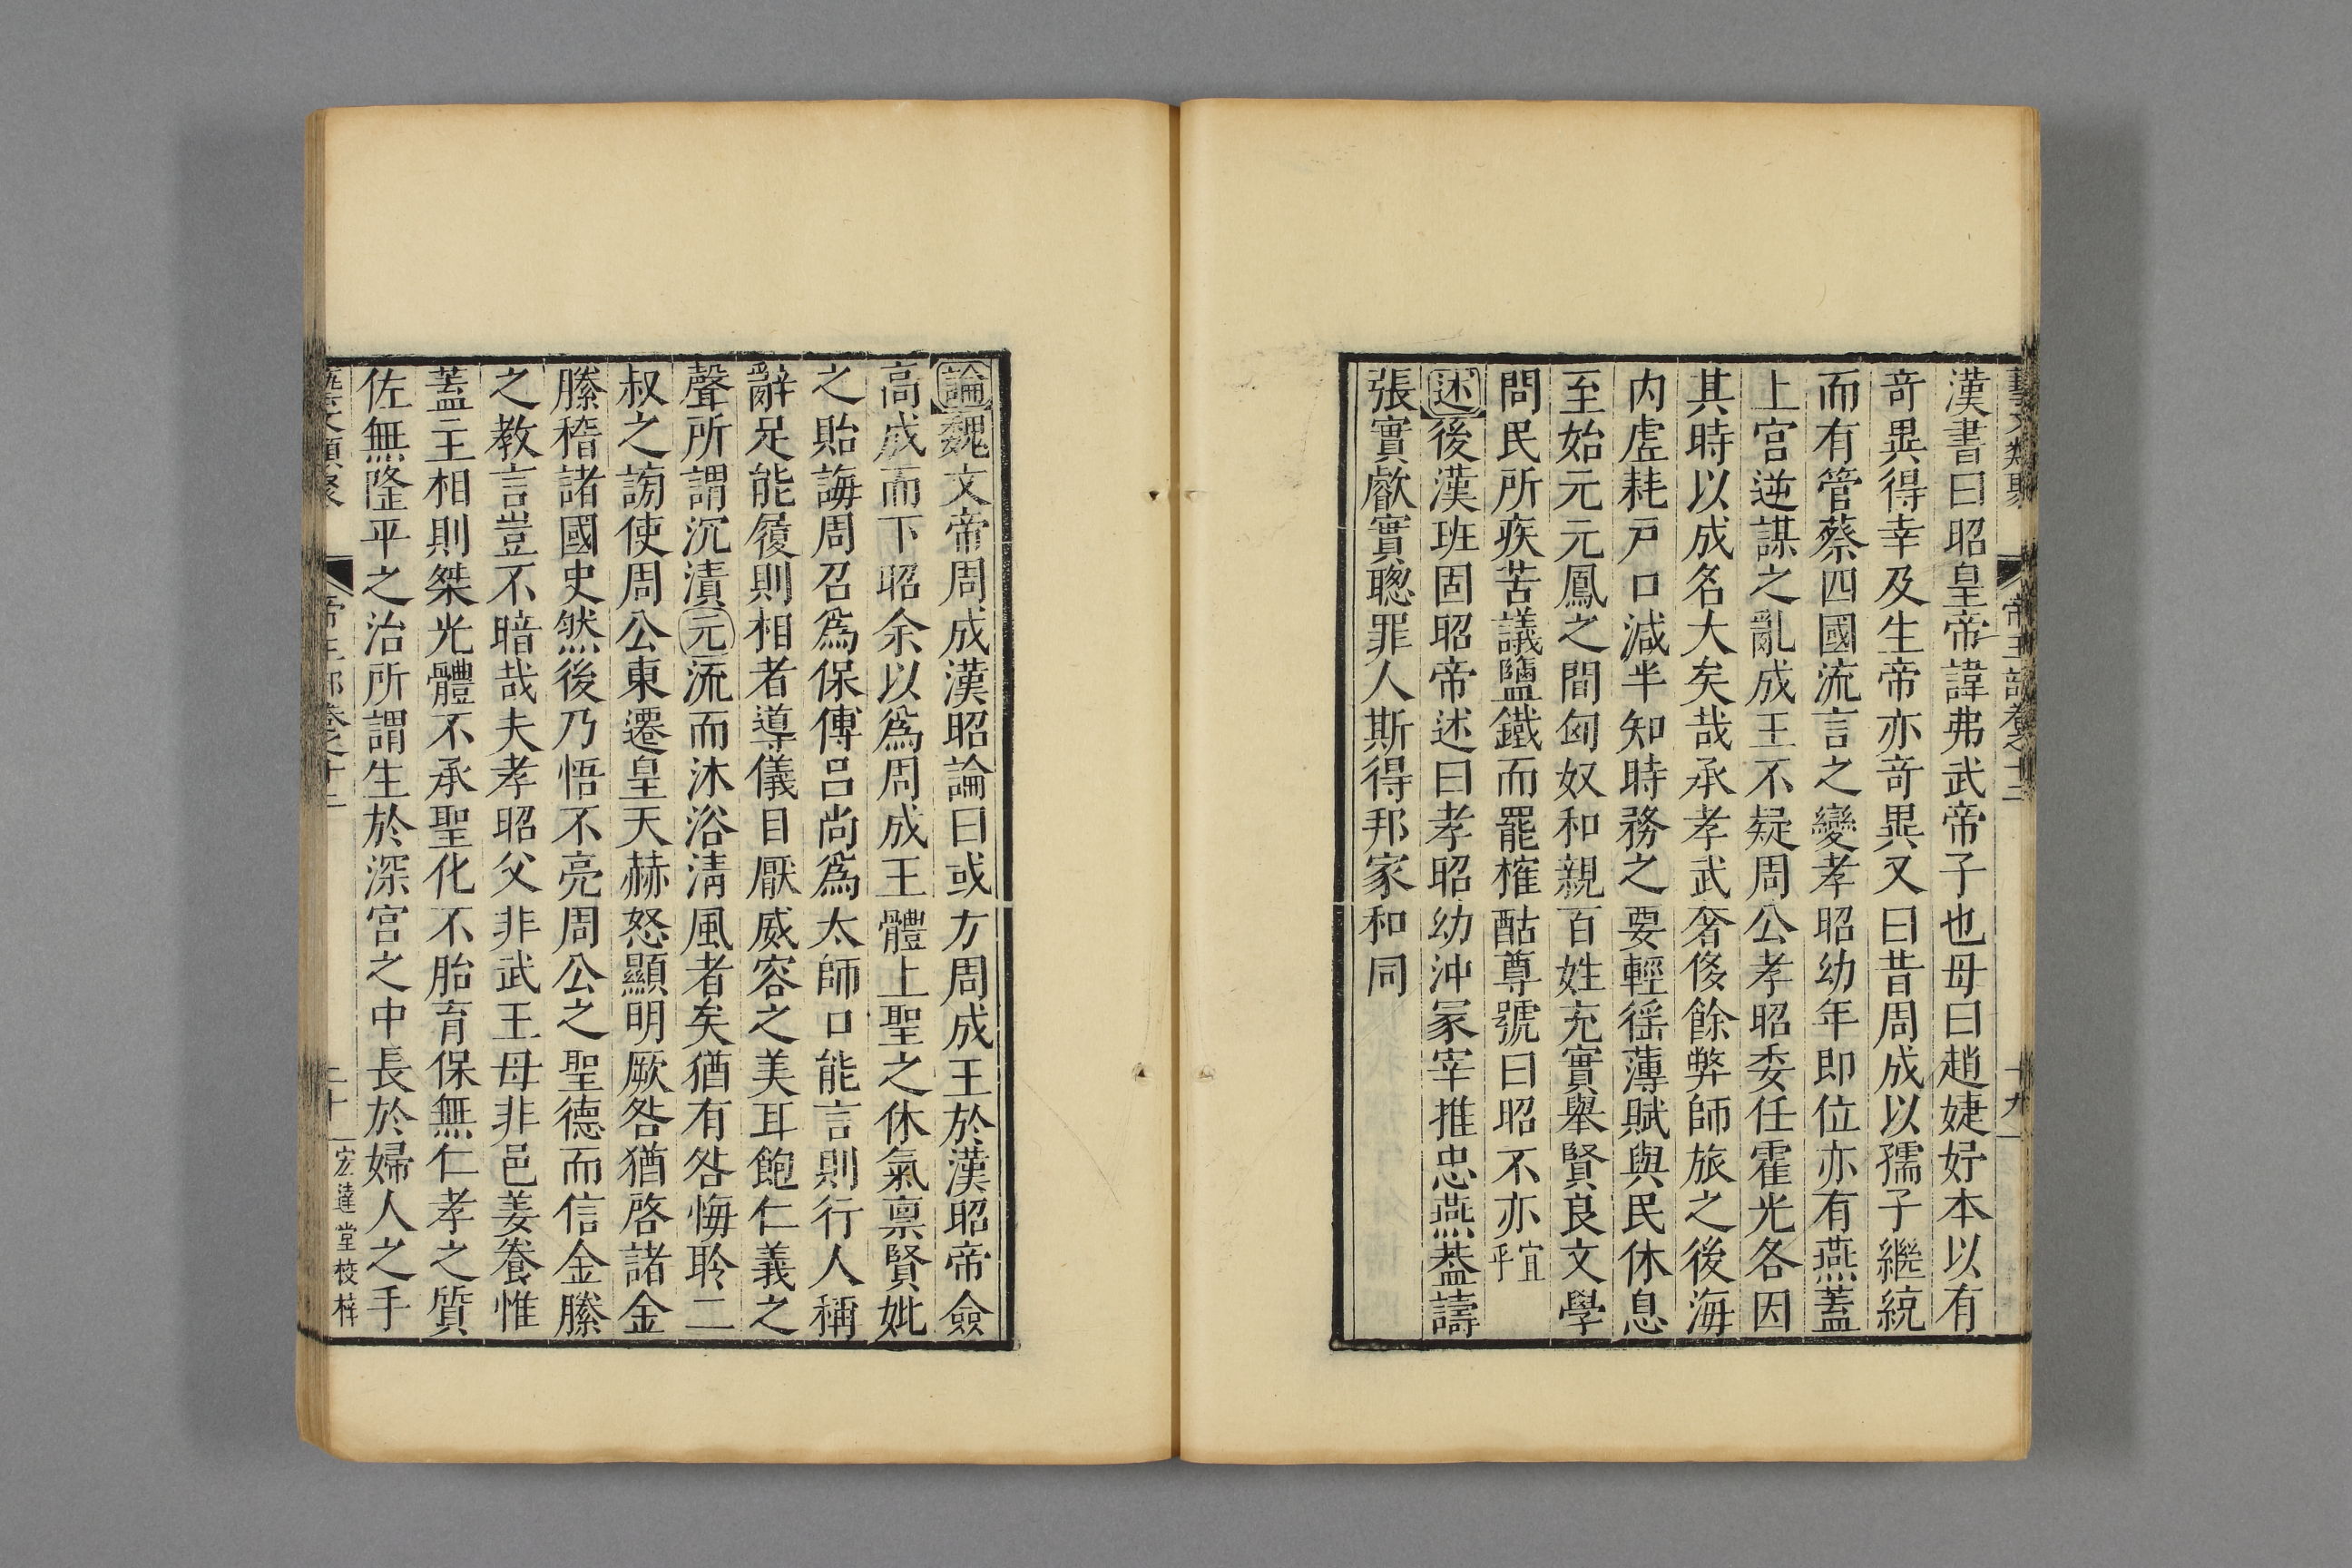 藝文類聚 帝王部卷之十二 十九
漢書曰昭皇帝諱弗武帝子也母曰趙婕妤本以有
竒異得幸及生帝亦竒異又曰昔周成以孺子繼統
而有管蔡四國流言之變孝昭幼年即位亦有燕蓋
上官逆謀之亂成王不疑周公孝昭委任霍光各因
其時以成名大矣哉承孝武奢侈餘弊師旅之後海
内虗耗戸口減半知時務之要輕徭薄賦與民休息
至始元元鳳之間匈奴和親百姓充實舉賢良文學
問民所疾苦議鹽鐵而罷榷酤尊號曰昭不亦宜乎
述後漢班固昭帝述曰孝昭幼沖冢宰推忠燕葢譸
張實叡實聰罪人斯得邦家和同
論魏文帝周成漢昭論曰或方周成王於漢昭帝僉
高成而下昭余以爲周成王體上聖之休氣禀賢妣
之貽誨周召爲保傅吕尚爲太師口能言則行人稱
辭足能履則相者導儀目厭威容之美耳飽仁義之
聲所謂沉漬元流而沐浴清風者矣猶有咎悔聆二
叔之謗使周公東遷皇天赫怒顯明厥咎猶啓諸金
縢稽諸國史然後乃悟不亮周公之聖德而信金縢
之教言豈不暗哉夫孝昭父非武王母非邑姜養惟
蓋主相則桀光體不承聖化不胎育保無仁孝之質
佐無隆平之治所謂生於深宫之中長於婦人之手
藝文類聚 帝王部卷之十二 二十 宏達堂校梓